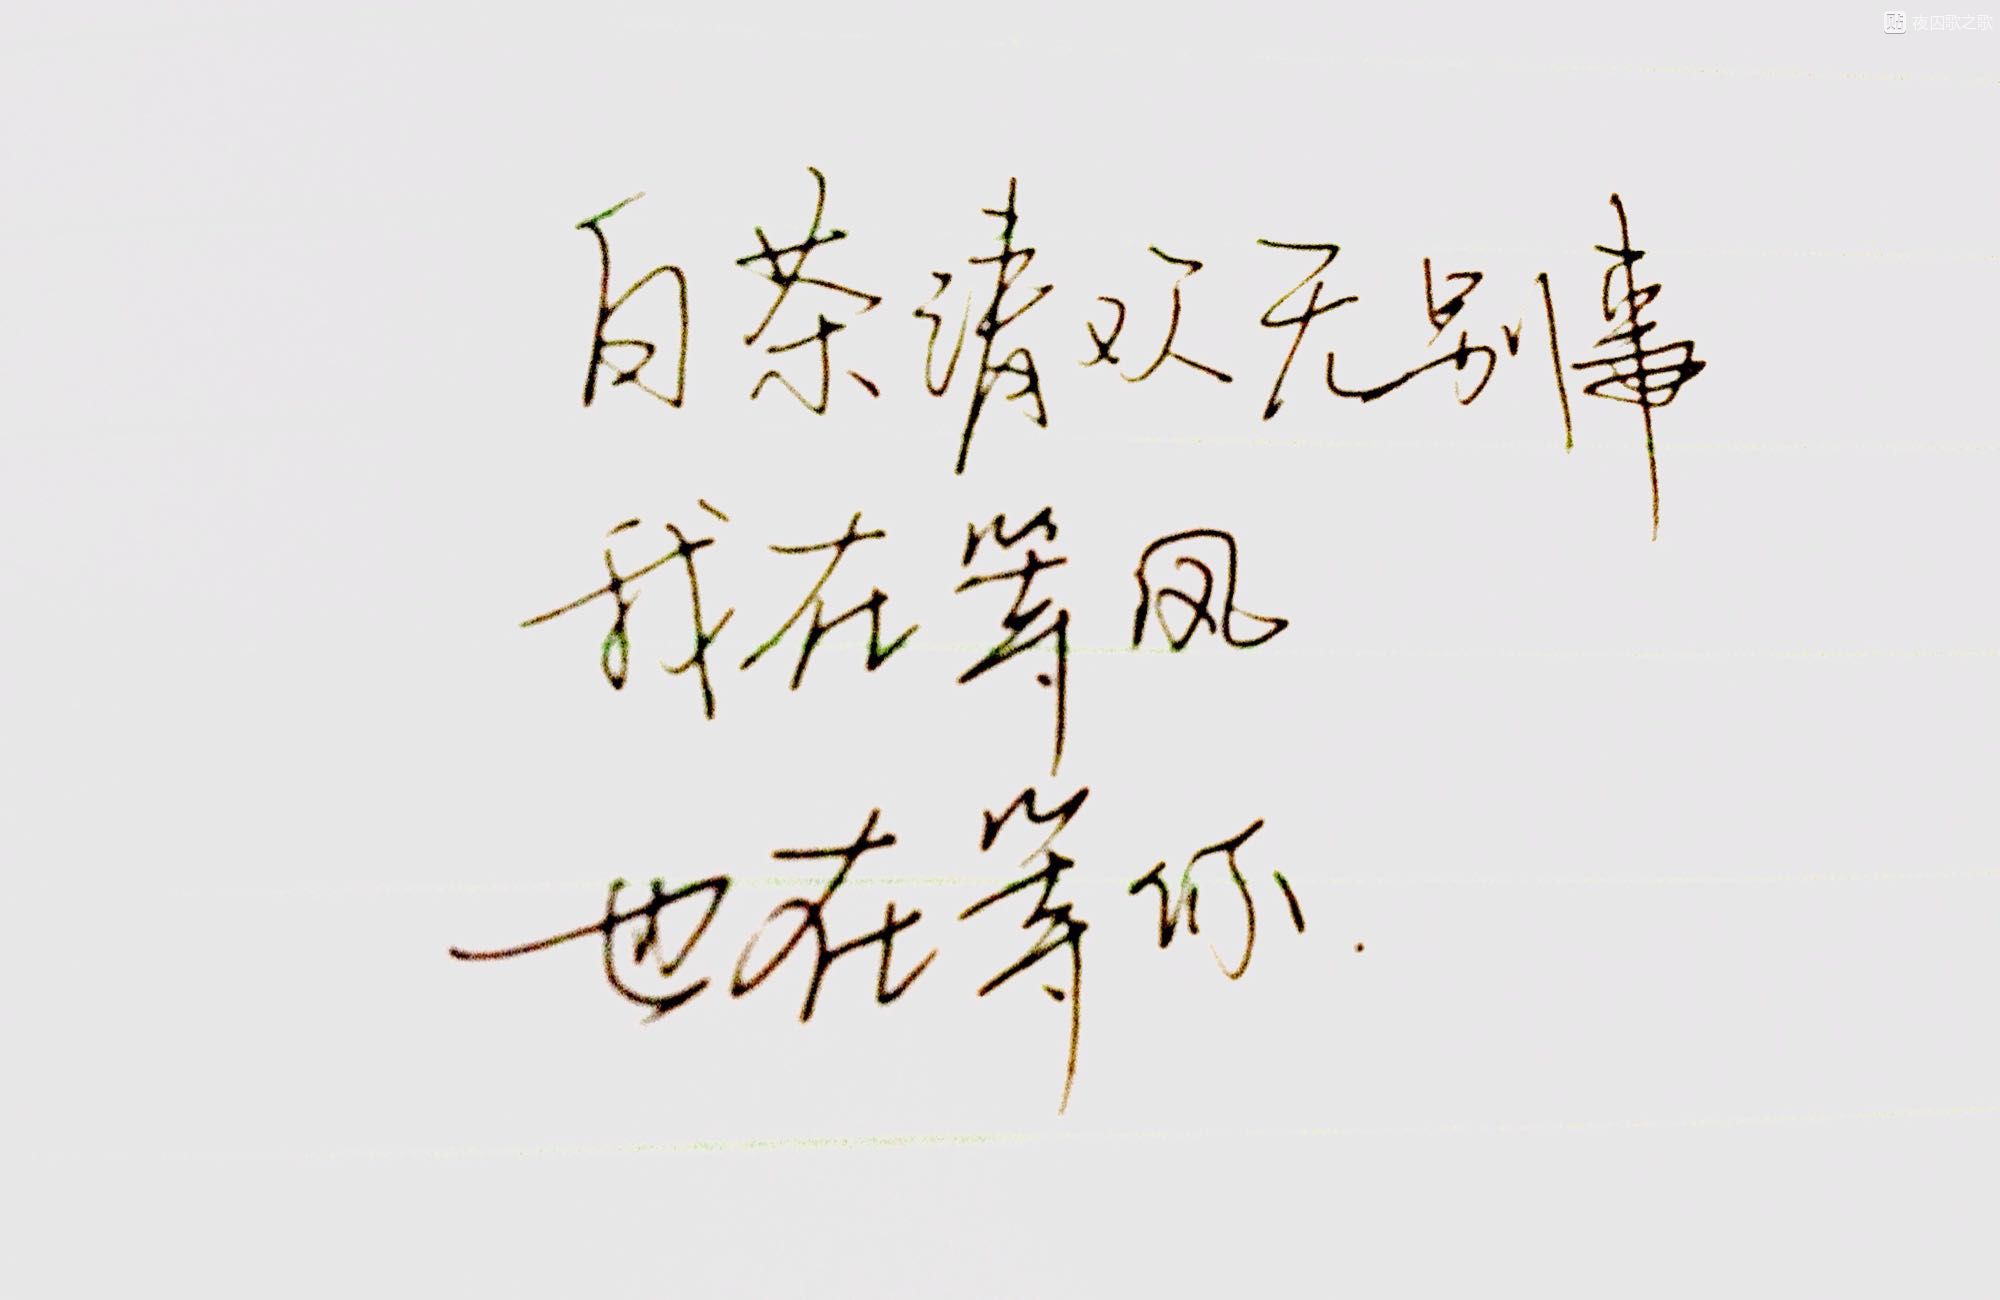 夜囚歌之歌
白茶清欢无别事
我在等风
也在等你.